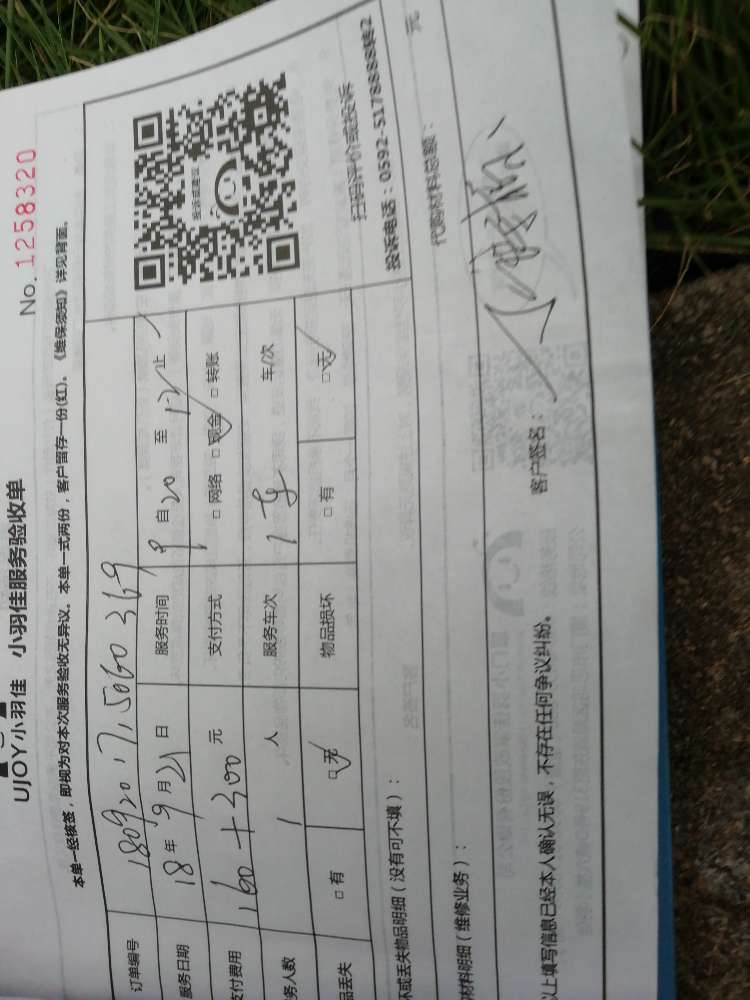 UJOY小羽佳 小羽佳服务验收单
No. 1258320
本单一经核签，即视为对本次服务验收无异议。本单一式两份，客户留存一份(红)。《维保须知》详见背面。
订单编号 18092017,5060369
服务日期 18年9月21日 服务时间 9自20至12止
支付费用 160+300元 支付方式 □网络 □现金 □转账
务人数 1人 服务车次 1 车/次
品丢失 □有 □无 物品损坏 □有 □无
投诉或建议
扫码评价或投诉
投诉电话：0592-5178888转2
坏或丢失物品明细（没有可不填）：
材料明细（维修业务）： 代购材料总额： 元
以上填写信息已经本人确认无误，不存在任何争议纠纷。 客户签名：